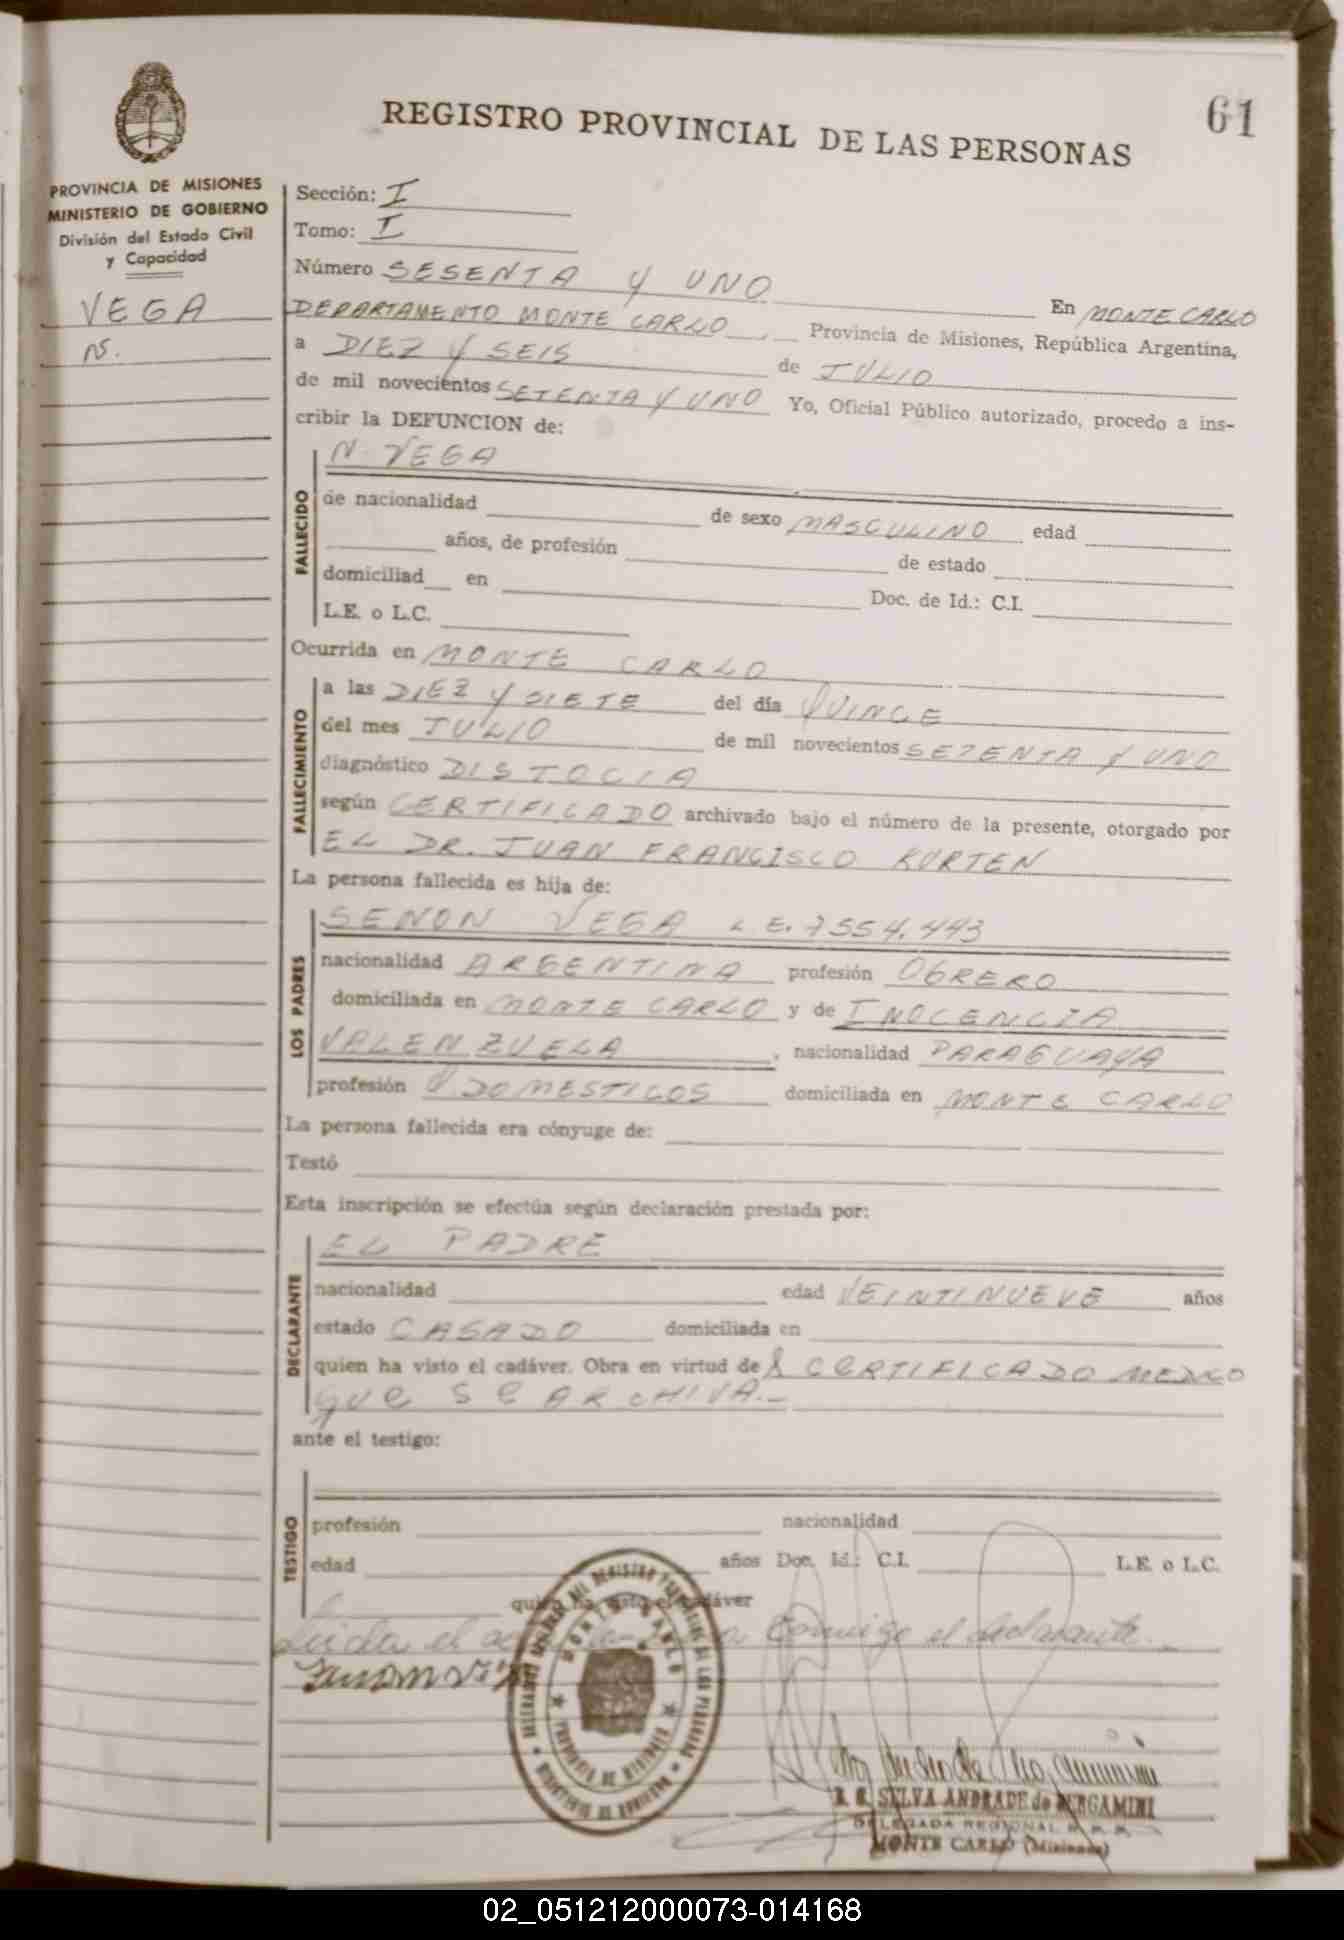 61
REGISTRO PROVINCIAL DE LAS PERSONAS
PROVINCIA DE MISIONES
MINISTERIO DE GOBIERNO
División del Estado Civil
y Capacidad
VEGA
N.
Sección: I
Tomo: I
Número SESENTA Y UNO En MONTE CARLO
DEPARTAMENTO MONTE CARLO, Provincia de Misiones, República Argentina,
a DIEZ Y SEIS de JULIO
de mil novecientos SETENTA Y UNO Yo, Oficial Público autorizado, procedo a ins-
cribir la DEFUNCION de:
N. VEGA
FALLECIDO
de nacionalidad de sexo MASCULINO edad
años, de profesión de estado
domiciliad en Doc. de Id.: C.I.
L.E. o L.C.
Ocurrida en MONTE CARLO
FALLECIMIENTO
a las DIEZ Y SIETE del día QUINCE
del mes JULIO de mil novecientos SETENTA Y UNO
diagnóstico DISTOCIA
según CERTIFICADO archivado bajo el número de la presente, otorgado por
EL DR. JUAN FRANCISCO KURTEN
La persona fallecida es hija de:
LOS PADRES
SENON VEGA L E. 7554.443
nacionalidad ARGENTINA profesión OBRERO
domiciliada en MONTE CARLO y de INOCENCIA
VALENZUELA, nacionalidad PARAGUAYA
profesión Q DOMESTICOS domiciliada en MONTE CARLO
La persona fallecida era cónyuge de:
Testó
Esta inscripción se efectúa según declaración prestada por:
DECLARANTE
EL PADRE
nacionalidad edad VEINTINUEVE años
estado CASADO domiciliada en
quien ha visto el cadáver. Obra en virtud de CERTIFICADO MEDICO
QUE SE ARCHIVA.-
ante el testigo:
TESTIGO
profesión nacionalidad
edad años Doc. Id.: C.I. L.E. o L.C.
quien ha visto el cadáver
Leida el conmigo el declarante.-
DELEGACION REGISTRO PROVINCIAL DE LAS PERSONAS
MONTE CARLO
PROVINCIA DE MISIONES
MINISTERIO DE GOBIERNO
SELVA ANDRADE de BERGAMINI
DELEGADA REGIONAL R. P. P.
MONTE CARLO (Misiones)
02_051212000073-014168